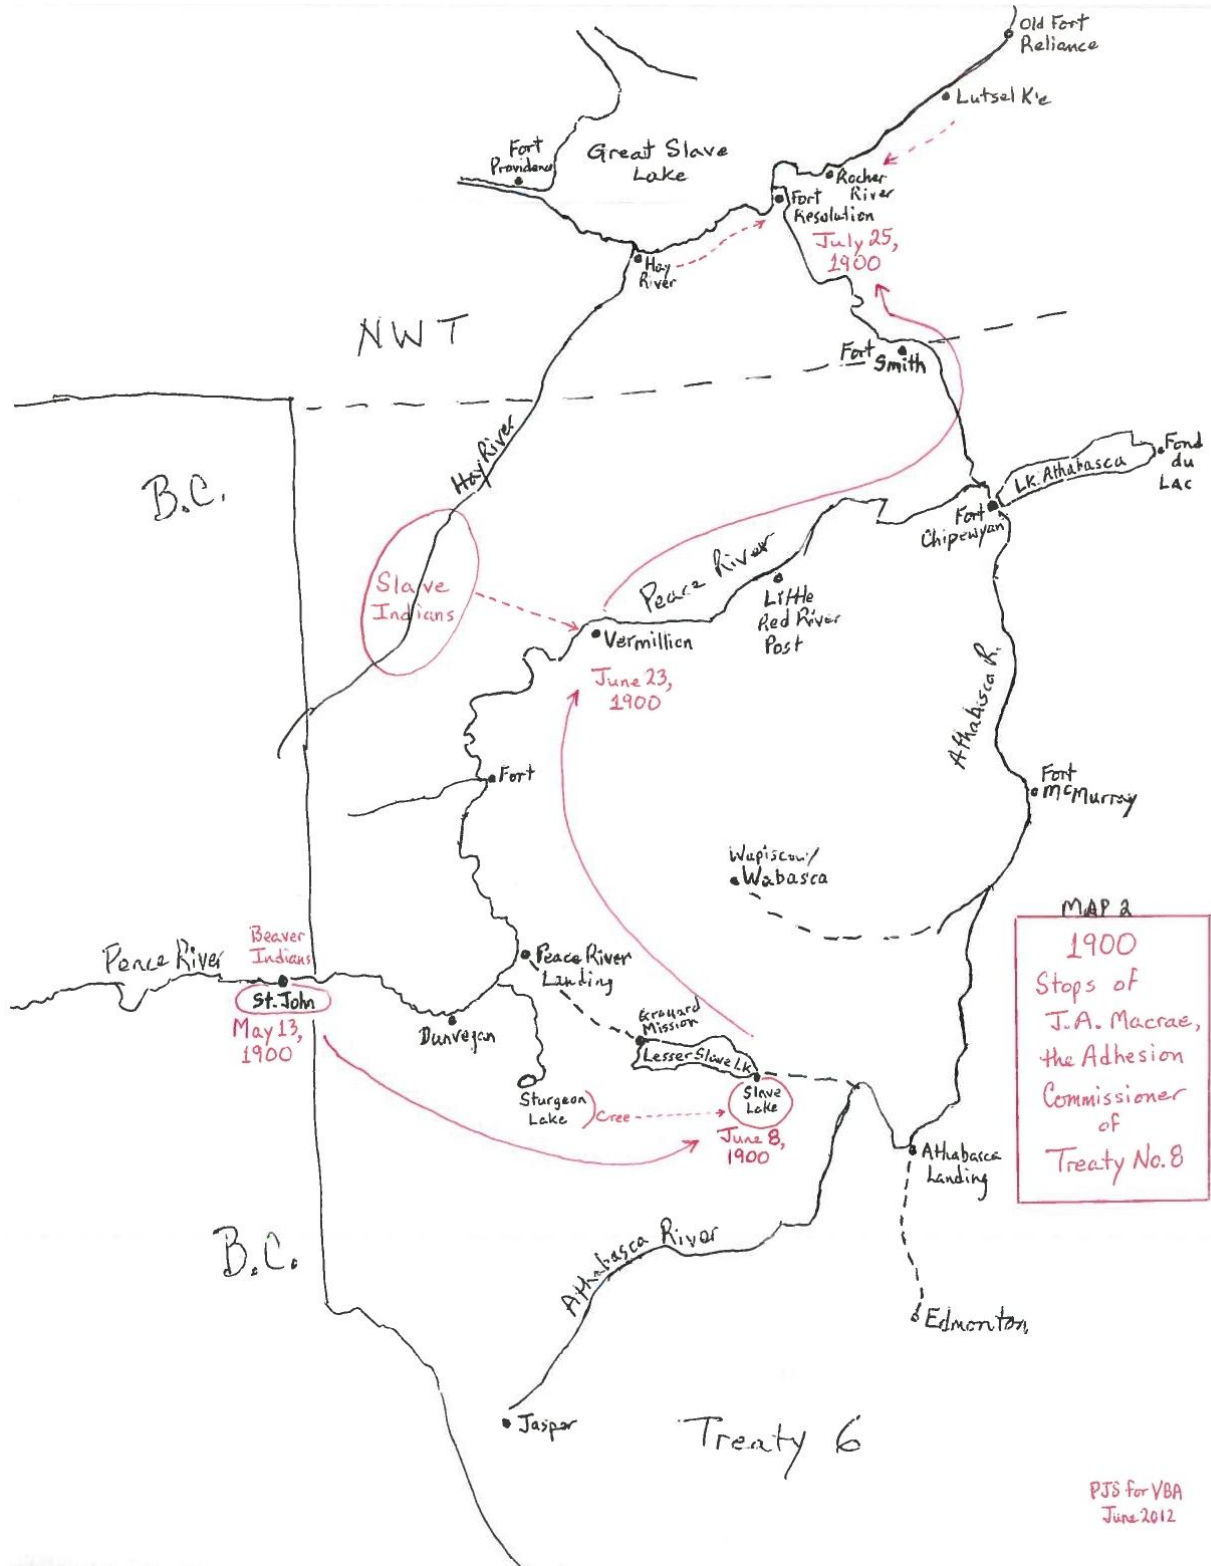 Old Fort
Reliance
Lutsel K'e
Fort
Providence
Great Slave
Lake
Rocher
River
Fort
Resolution
July 25,
1900
Hay
River
NWT
Fort
Smith
Hay River
B.C.
Lk. Athabasca
Fond
du
Lac
Fort
Chipewyan
Slave
Indians
Peace River
Little
Red River
Post
Vermillion
June 23,
1900
Athabasca R.
Fort
Fort
McMurray
Wapiscow/
Wabasca
MAP 2
1900
Stops of
J.A. Macrae,
the Adhesion
Commissioner
of
Treaty No. 8
Peace River
Beaver
Indians
St. John
May 13,
1900
Peace River
Landing
Dunvegan
Grouard
Mission
Lesser Slave Lk.
Sturgeon
Lake
Cree
Slave
Lake
June 8,
1900
Athabasca
Landing
B.C.
Athabasca River
Edmonton
Jasper
Treaty 6
PJS for VBA
June 2012